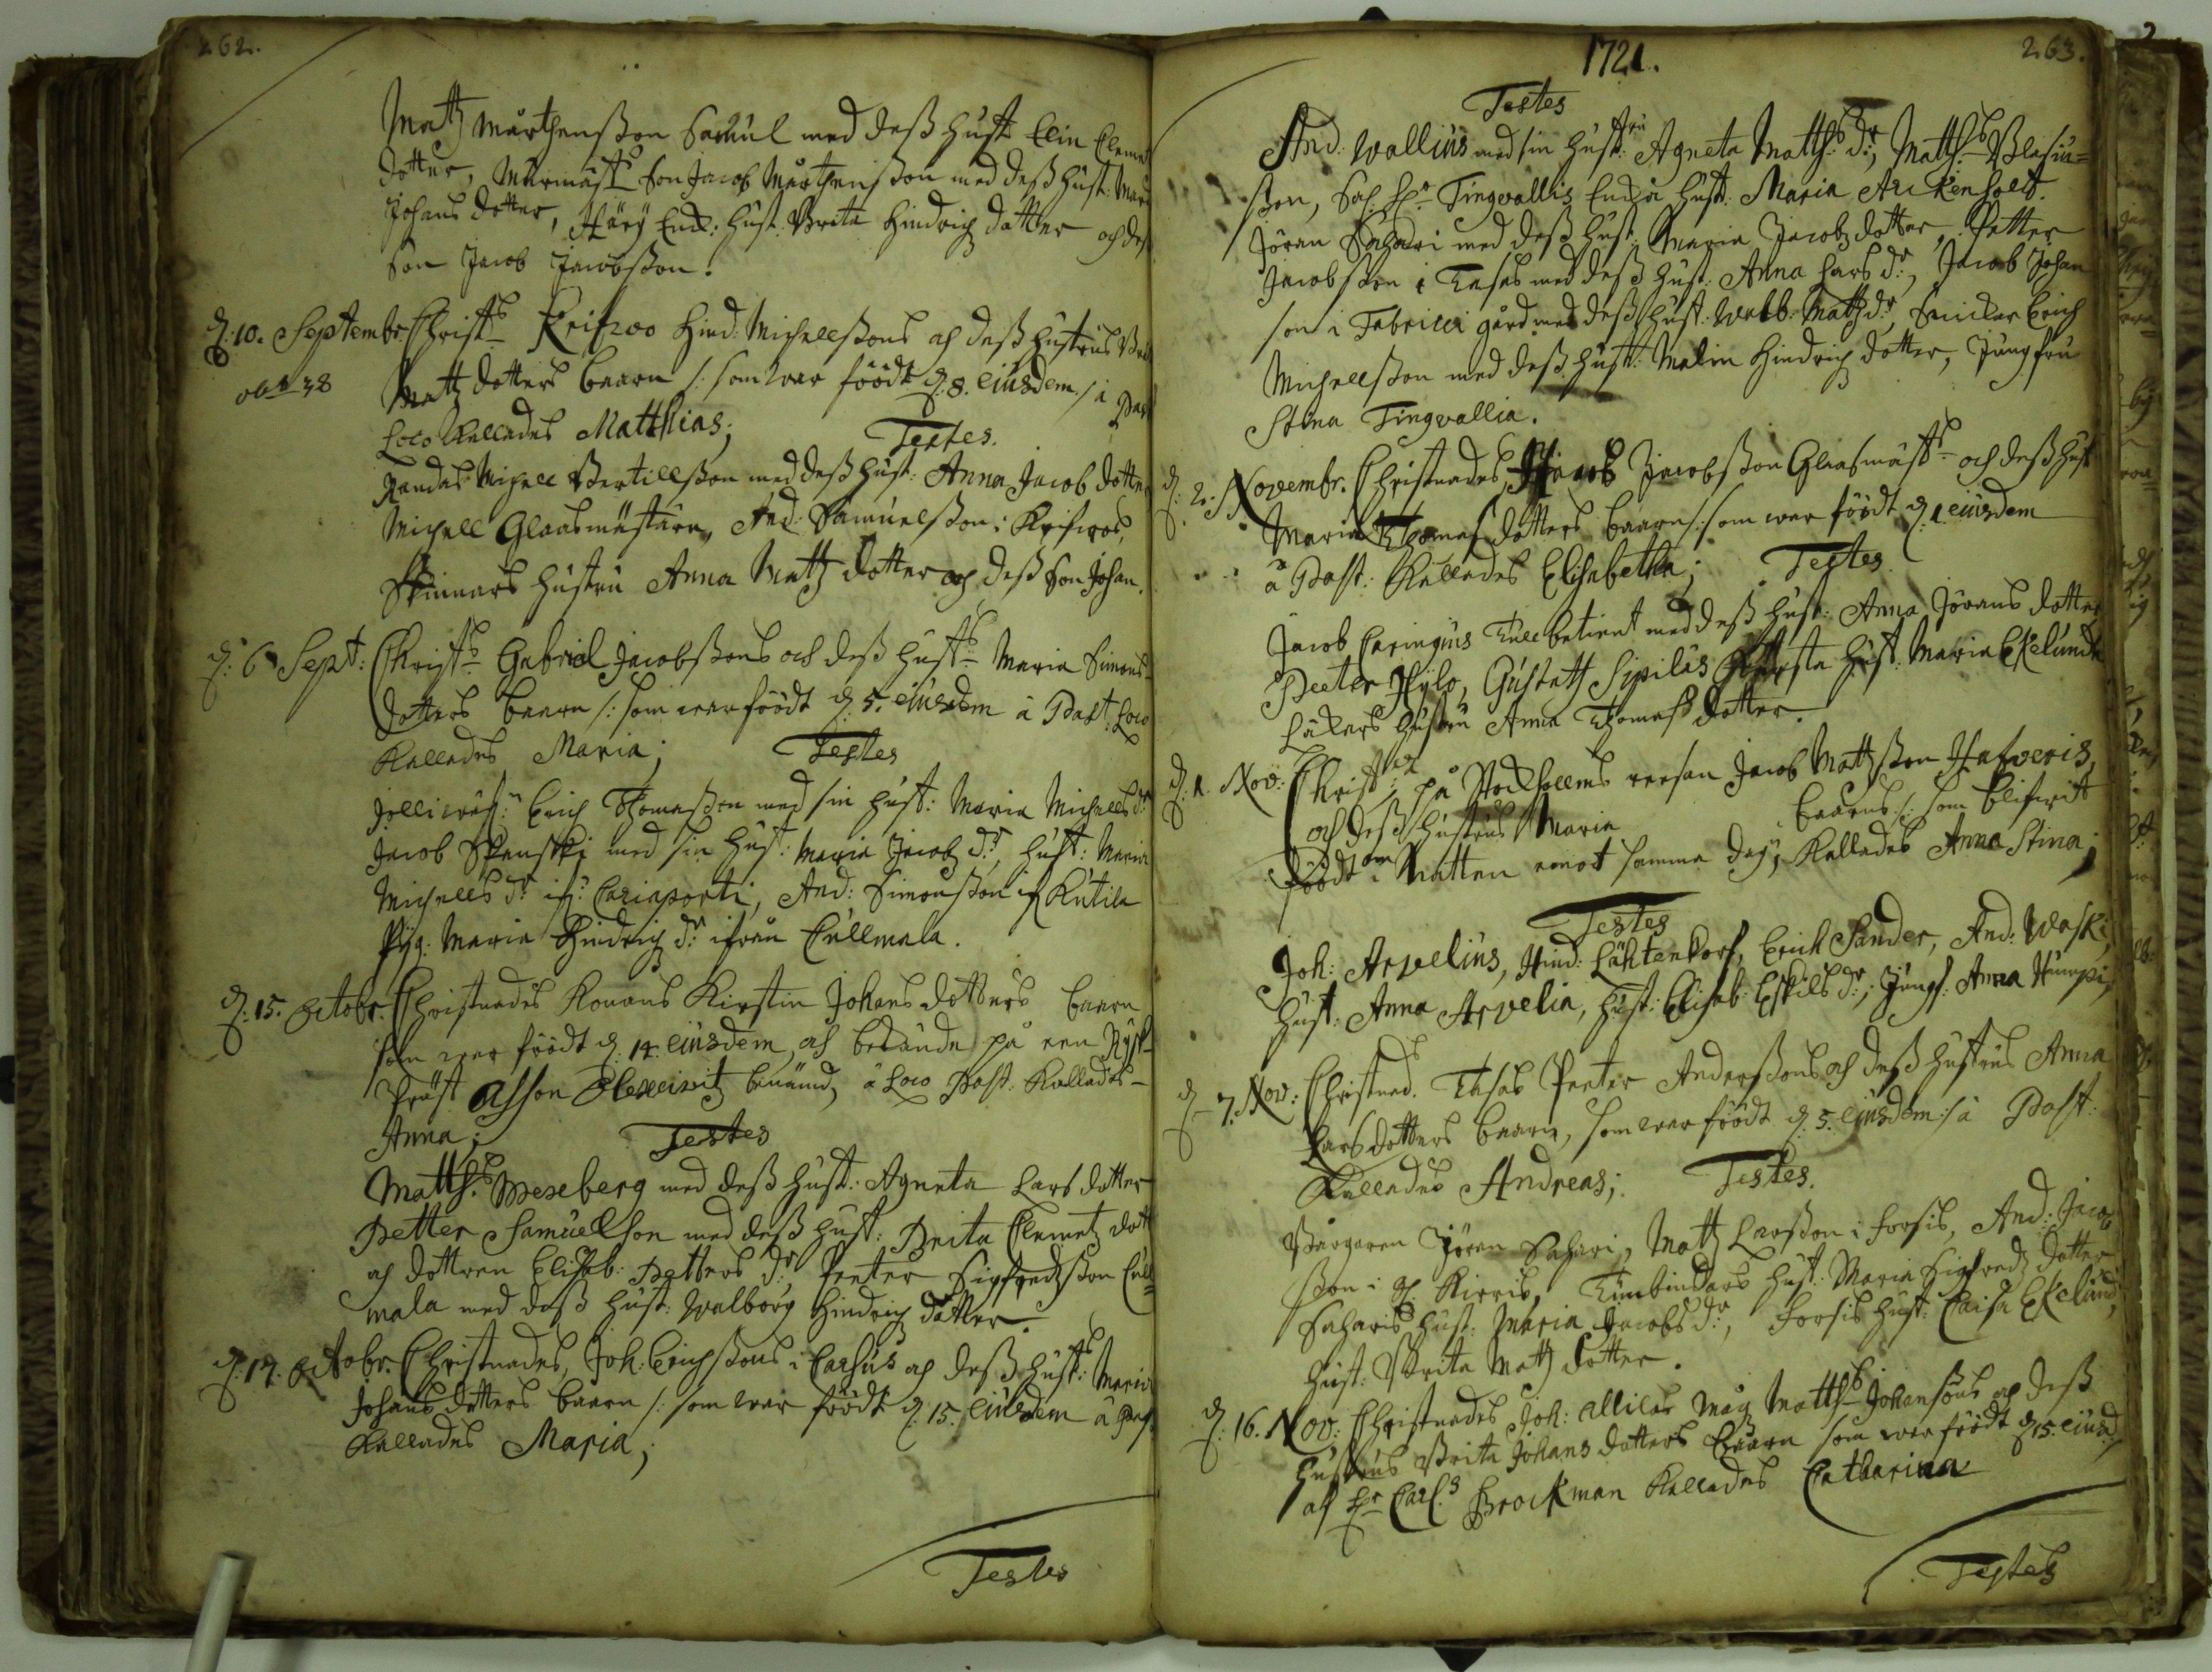 262.
Matz Mårthensson Samuel med deß Hust Elin Clemet
dotter, Murmäst: Son Jacob Mårthensson med deß Hust: Maria
Johans dotter, Enck: Hust: Brita Hindrich dotter och deß
Son Jacob Jacobsson.
d. 10. Septembr. Christ: Krifwo Hind: Michellssons och deß Hustrus
Matz dotters baarn /: som war föödt d. 8. eiusdem :/ à Past
ob: 38
Loco Kallades Matthias; Testes.
Michell Bertillsson med deß Hust: Anna Jacob dotter
Michell Glaasmästare, And: Samuelsson i Krifwos,
Skinnars Hustru Anna Matz dotter och deß Son Johan.
d: 6 Sept: Christ: Gabriel Jacobssons och deß Hust: Maria Simons
dotters baarn /: som war föödt d. 5. eiusdem à Past: Loco
Kallades Maria; Testes
Erich Thomasson med sin Hust: Maria Michells dr
Jacob Skanski med sin Hust: Maria Jacob dr, Hust: Maria
Michells dr if: Cariaporti, And: Simonsson if Kutila
Pig: Maria Hindrich dr ifrån Cullmala.
d: 15. Octobr. Christnades Konans Kirstin Johans dotters baarn
som war föödt d. 14. eiusdem, och bekände på een Rysk
Präst Alexeiwitz benämd, à Loco Past: Kallades
Anna; Testes
Matths Weseberg med deß Hust: Agneta Lars dotter
Petter Samuelson med deß Hust: Brita Clemetz dott
och dottren Elisab: Petters dr, Peeter Sigfredzson Cull=
mala med deß Hust: Walborg Hindrich dotter.
d: 17. Octobr. Christnades, Joh: Erichssons i Carhus och deß Hust: Maria
Johans dotters baarn /: som war föödt d. 15. eiusdem à Past
Kallades Maria;
Testes
1721.
263.
Testes
And: Wallius med sin Hust: Agneta Matths: dr, Matths: Blasius=
sson, Sal: Hr Tingvallis Enckia Hust: Maria Arckenholtz.
Jöran Sahari med deß Hust: Maria Jacobz dotter, Petter
Jacobsson i Tasas med deß Hust: Anna Lars dr, Jacob Johan
son i Fabricii gård med deß Hust: Walb: Matz dr, Erich
Michellsson med deß Hust: Malin Hindrich dotter, Jungfru
Stina Tingvallia.
d: 2. Novembr. Christnades, Jacob Jacobsson Glaasmäst: och deß Hust
Maria Thomas dotters baarn /: som war föödt d. 1 eiusdem
à Past: Kallades Elisabetha; Testes
Jacob Caringius Tullbetient med deß Hust: Anna Jörans dotter
Peeter Hylo, Gustaff Sipiläs Hust: Maria Ekelunda
Hustru Anna Thomas dotter.
d. 1. Nov: Christ: på Stockholms reesan Jacob Mattsson Hatveris,
och deß Hustrus Maria baarns /: som blifwit
föödt om Natten emot samma dag; Kallades Anna Stina;
Testes
Joh: Arvelius, Hind: Lähtenkorf, Erich Sander, And: Waski,
Hust: Anna Arvelia, Hust: Elisab: Eskils dr, Jungf: Anna Humpi,
d. 7. Nov: Christned. Tasas Peeter Anderssons och deß Hustrus Anna
Lars dotters baarn, som war föödt d. 5. eiusdem :/ à Past:
Kallades Andreas; Testes.
Borgaren Jöran Sahari, Matz Larsson i Forsis, And: Jacob
sson i Kirris, Tunbindars Hust: Maria Sigfredz dotter
Saharis Hust: Maria Jacobs dr, Forsis Hust: Caisa Ekelund,
Hust: Brita Matz dotter.
d: 16. Nov: Christnades Joh: Allilas Måg Matths Johanssons och deß
Hustrus Brita Johans dotters baarn som war föödt d. 15. eiusd:
af Hr Carl Brockman Kallades Catharina
Testes